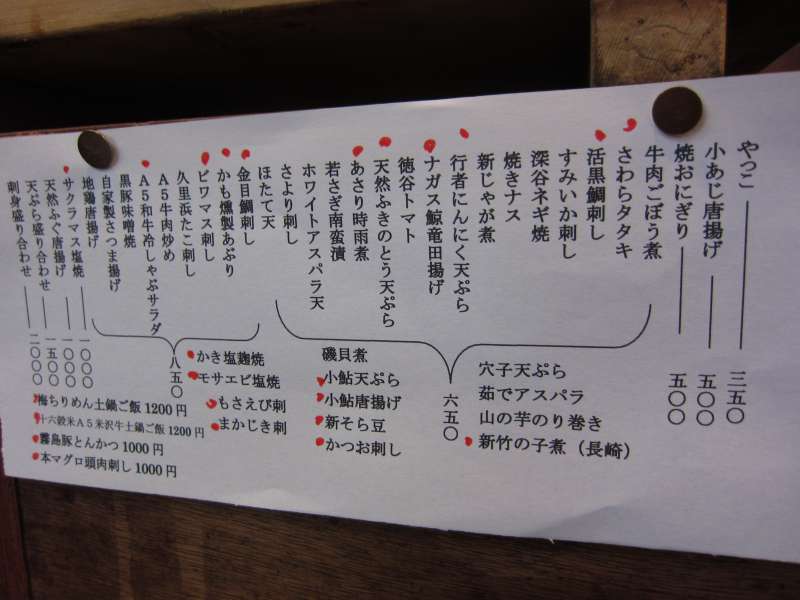 やっこ 三五〇
小あじ唐揚げ 五〇〇
焼おにぎり 五〇〇
牛肉ごぼう煮
さわらタタキ
活黒鯛刺し
すみいか刺し
深谷ネギ焼
焼きナス
新じゃが煮
行者にんにく天ぷら
ナガス鯨竜田揚げ
徳谷トマト
天然ふきのとう天ぷら
あさり時雨煮
若さぎ南蛮漬
ホワイトアスパラ天
さより刺し
ほたて天
六五〇
穴子天ぷら
茹でアスパラ
山の芋のり巻き
新竹の子煮（長崎）
磯貝煮
小鮎天ぷら
小鮎唐揚げ
新そら豆
かつお刺し
金目鯛刺し
かも燻製あぶり
ビワマス刺し
久里浜たこ刺し
Ａ５牛肉炒め
Ａ５和牛冷しゃぶサラダ
黒豚味噌焼
自家製さつま揚げ
地鶏唐揚げ
八五〇
かき塩麹焼
モサエビ塩焼
もさえび刺
まかじき刺
サクラマス塩焼 一〇〇〇
天然ふぐ唐揚げ 一〇〇〇
天ぷら盛り合わせ 一五〇〇
刺身盛り合わせ 二〇〇〇
梅ちりめん土鍋ご飯 1200円
十六穀米Ａ５米沢牛土鍋ご飯 1200円
霧島豚とんかつ 1000円
本マグロ頭肉刺し 1000円